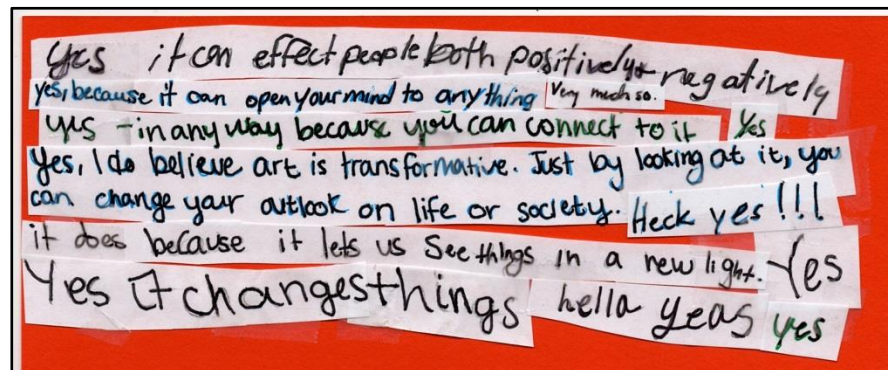 yes it can effect people both positively + negatively
yes, because it can open your mind to anything Very much so.
yes - in any way because you can connect to it Yes
Yes, I do believe art is transformative. Just by looking at it, you
can change your outlook on life or society. Heck yes!!!
it does because it lets us See things in a new light. Yes
Yes It changes things hella yeas yes